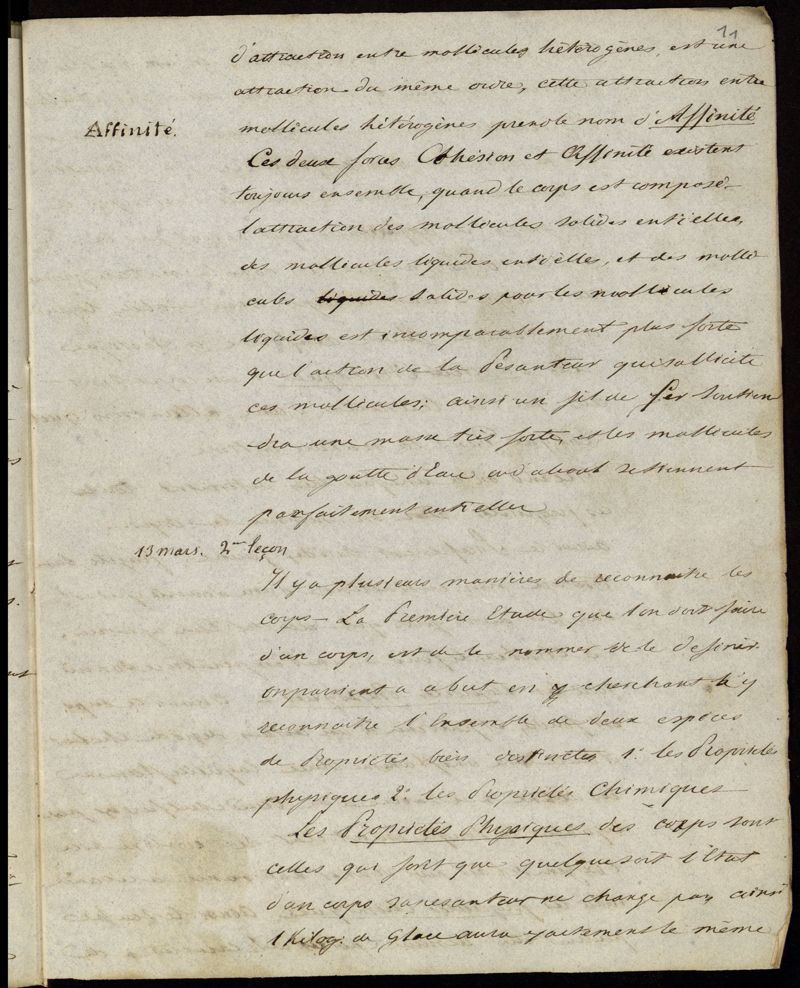 11
d'attraction entre mollécules hétérogènes, est une
attraction du même ordre, cette attraction entre
Affinité.
mollicules hétérogènes prend le nom d'Affinité
Ces deux forces Cohésion et Affinité existent
toujours ensemble, quand le corps est composé_
l'attraction des mollicules solides entr'elles,
des mollicules liquides entr'elles, et des molli
cules liquides solides pour les mollicules
liquides est incomparablement plus forte
que l'action de la Pesanteur qui sollicite
ces mollicules; ainsi un fil de fer soutien
dra une masse très forte, et les mollicules
de la goutte d'Eau se tiennent
parfaitement entr'elles
13 mars. 2me leçon
Il y a plusieurs manières de reconnaitre les
corps_ La Première Etude que l'on doit faire
d'un corps, est de le nommer et de le définir.
on parvient a a but en y cherchant à y
reconnaitre l'Ensemble de deux espèces
de Propriétés bien distinctes 1°. les Propriétés
physiques 2°. les Propriétés Chimiques
Les Propriétés Physiques des corps sont
celles qui font que quelquesoit l'Etat
d'un corps sa pesanteur ne change pas, ainsi
1 Kilog. de Glace aura exactement le même